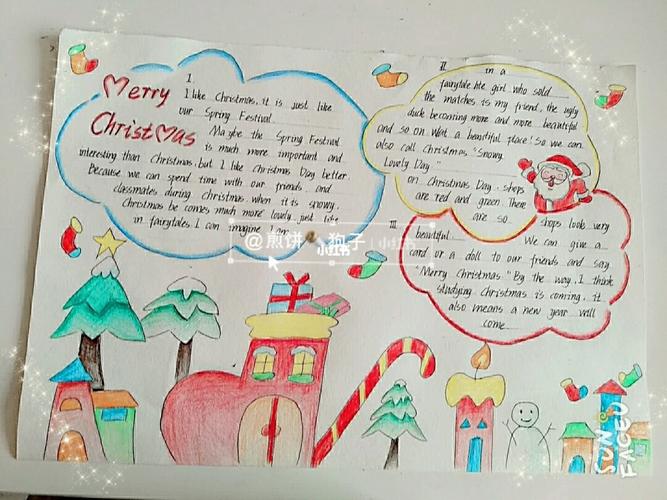 Merry
Christmas
I.
I like Christmas, it is just like
our Spring Festival
Maybe the Spring Festival
is much more important and
interesting than Christmas. but I like Christmas Day better.
Because we can spend time with our friends and
classmates during christmas. when it is snowy.
Christmas be comes much more lovely. just like
in fairytales. I can imagine I am
II. in a
fairytale. the girl who sold
the matches is my friend, the ugly
duck becoming more and more beautiful
and so on What a beautiful place! So we can
also call Christmas "Snowy
Lovely Day"
on Christmas Day. shops
are red and green There
are so
III. shops look very
beautiful We can give a
card or a doll to our friends and say
"Merry Christmas." By the way, I think
studying Christmas is coming, it
also means a new year will
come
@煎饼 狗子
小红书
小红书
SUN
FACEU